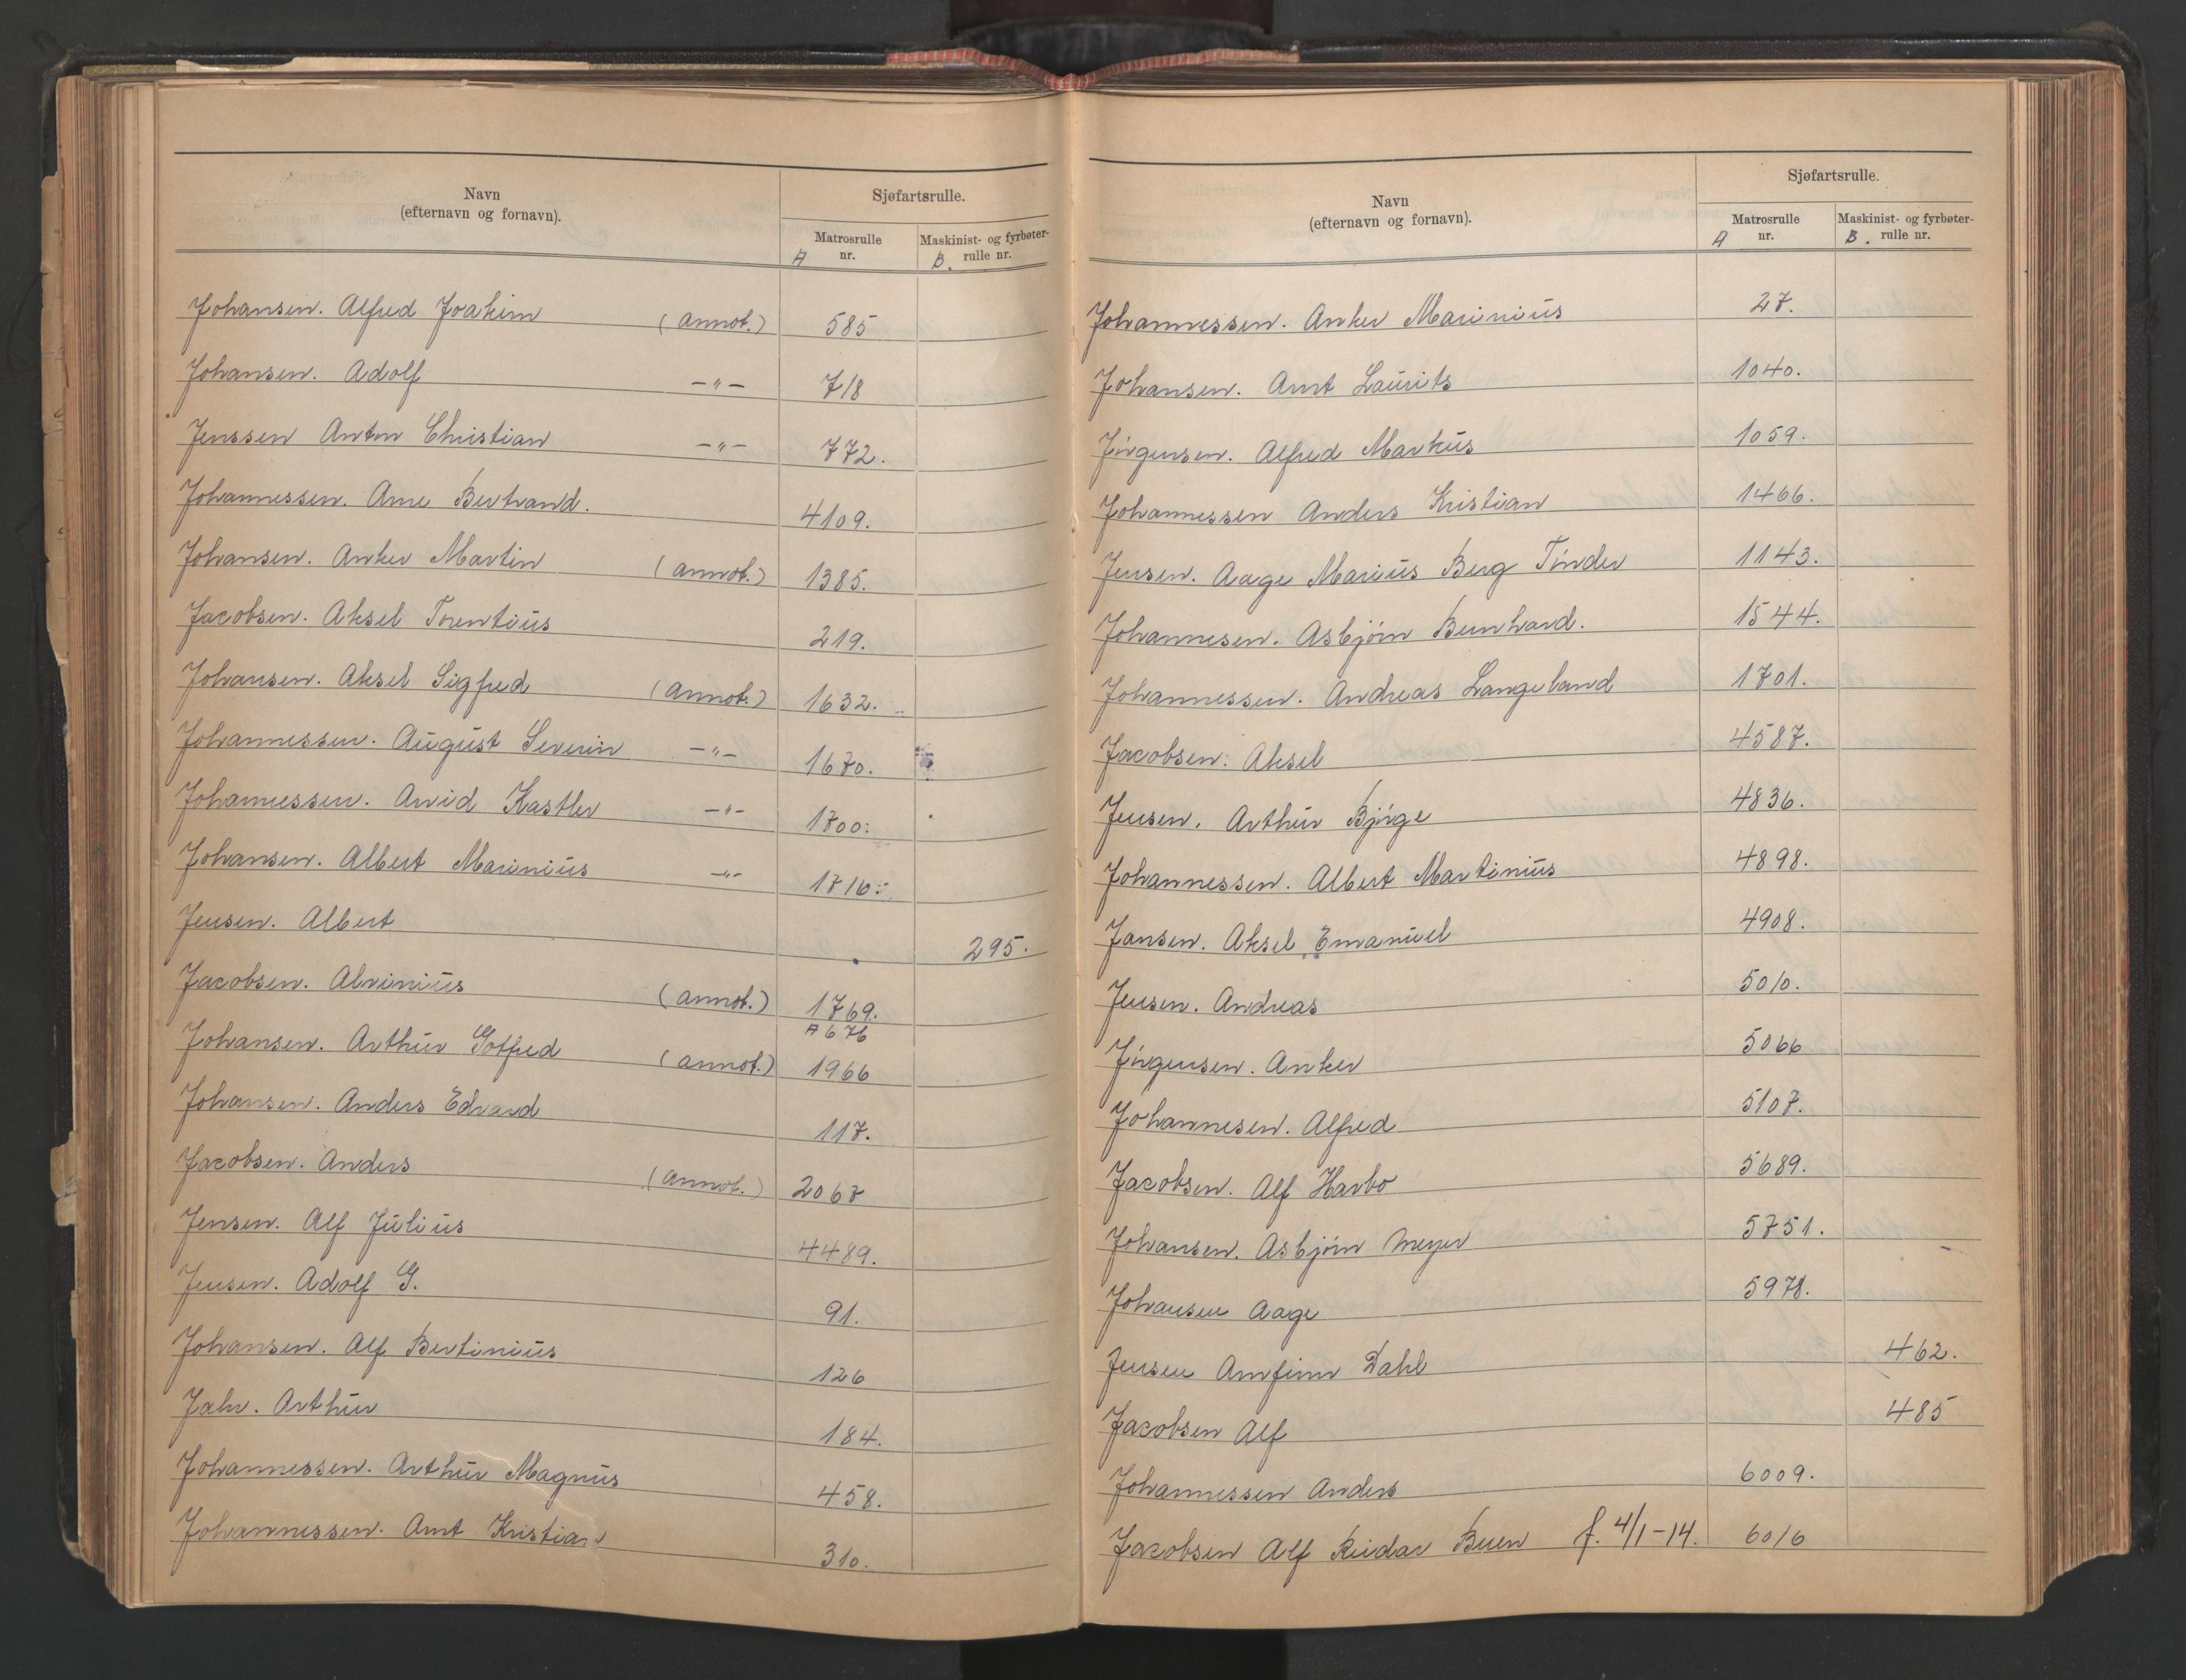 Navn
(efternavn og fornavn).
Sjøfartsrulle.
Matrosrulle
A nr.
Maskinist- og fyrbøter-
B. rulle nr.
Johansen. Alfred Joakim (annot.) 585
Johansen. Adolf —"— 718
Jenssen Anton Christian —"— 772.
Johannessen. Arne Bertrand. 4109.
Johansen. Anker Martin (annot.) 1385.
Jacobsen. Aksel Torentius 219.
Johansen. Aksel Sigfred (annot.) 1632.
Johannessen. August Severin —"— 1670.
Johannessen. Arvid Kastler —"— 1700.
Johansen. Albert Marinius —"— 1716.
Jensen. Albert 295.
Jacobsen. Alvinius (annot.) 1769.
A 676
Johansen. Arthur Gotfred (annot.) 1966
Johansen. Anders Edvard 117.
Jacobsen. Anders (annot.) 2067
Jensen. Alf Julius 4489.
Jensen. Adolf G. 91.
Johansen. Alf Bertinius 126
Jahr. Arthur 184.
Johannessen. Arthur Magnus 458.
Johannessen. Arnt Kristian 310.
Navn
(efternavn og fornavn).
Sjøfartsrulle.
Matrosrulle
A nr.
Maskinist- og fyrbøter-
B. rulle nr.
Johannessen. Anker Marinius 27.
Johansen. Arnt Laurits 1040.
Jørgensen. Alfred Markus 1059.
Johannessen Anders Kristian 1466.
Jensen. Aage Marius Berg Tønder 1143.
Johannesen. Asbjørn Bernhard. 1544.
Johannessen. Andreas Langeland 1701.
Jacobsen. Aksel 4587.
Jensen. Arthur Bjørge 4836.
Johannessen. Albert Martinius 4898.
Jansen. Aksel Emanuel 4908.
Jensen. Andreas 5010.
Jørgensen. Anker 5066
Johannesen. Alfred 5107.
Jacobsen. Alf Harbo 5689.
Johansen. Asbjørn Meyer 5751.
Johansen Aage 5978.
Jensen Arnfinn Dahl 462.
Jacobsen Alf 485
Johannessen Anders 6009.
Jacobsen Alf Reidar Buen f. 4/1-14. 6016